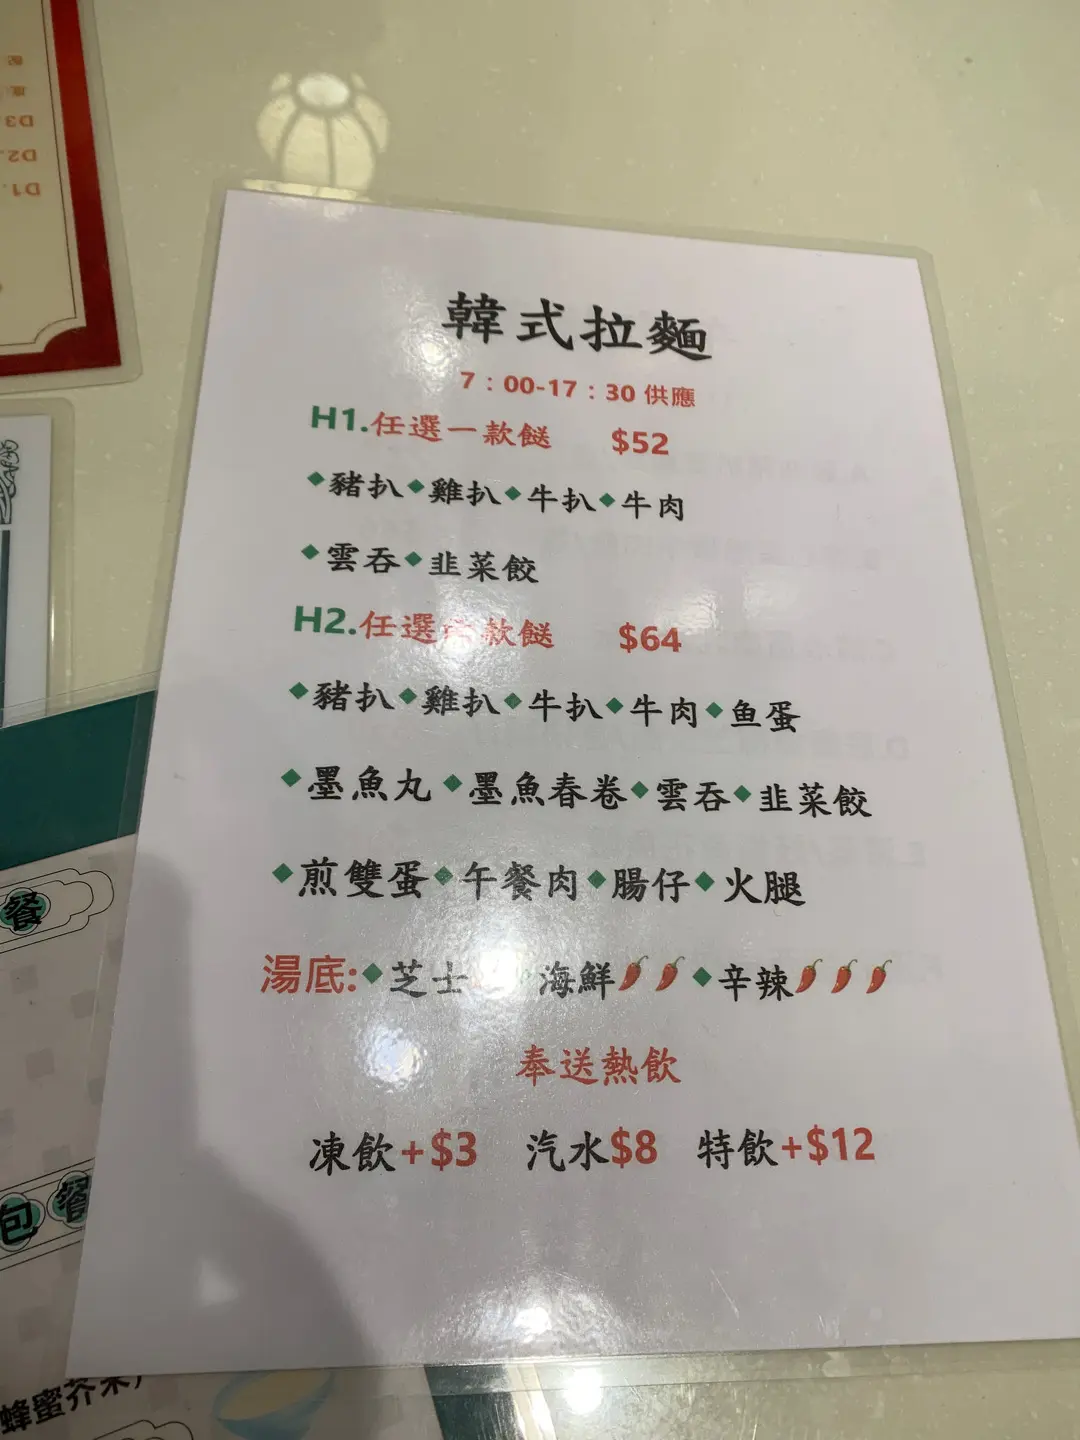 韓式拉麵
7：00-17：30 供應
H1.任選一款餸 $52
◆豬扒◆雞扒◆牛扒◆牛肉
◆雲吞◆韭菜餃
H2.任選款餸 $64
◆豬扒◆雞扒◆牛扒◆牛肉◆鱼蛋
◆墨魚丸◆墨魚春卷◆雲吞◆韭菜餃
◆煎雙蛋◆午餐肉◆腸仔◆火腿
湯底:◆芝士 海鮮🌶🌶◆辛辣🌶🌶🌶
奉送熱飲
凍飲+$3 汽水$8 特飲+$12
D3
D2.
D1.
餐
包餐
蜂蜜芥末